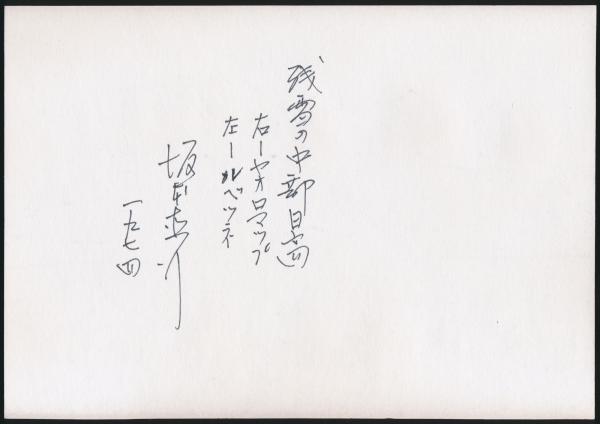 残雪の中部日高
右ーヤオロマップ
左ールベツネ
坂本直行
一九七四